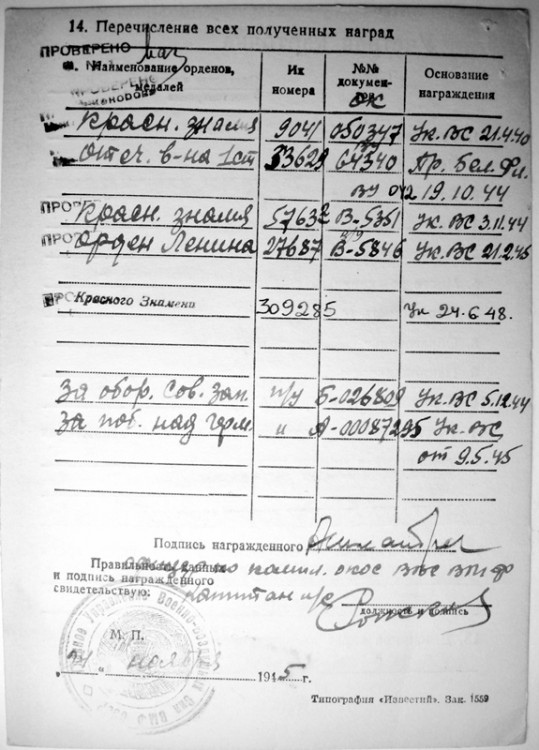 14. Перечисление всех полученных наград
ПРОВЕРЕНО
Наименование орденов, медалей
Их номера
№№ докумен-
Основание награждения
ОК
Красн. знамя 9041 050347 Ук. ВС 21.4.40
Отеч. в-на 1 ст 33629 64340 Пр. Бел. Фл.
ВУ 042 19.10.44
Красн. знамя 57632 В-5351 Ук. ВС 3.11.44
Орден Ленина 27687 В-5846 Ук. ВС 21.2.45
Красного Знамени 309285 Ук 24.6.48.
За обор. Сов. Зап. н/у Б-026809 Ук. ВС 5.12.44
За поб. над герм. и А-00087295 Ук. ВС
от 9.5.45
Подпись награжденного
Правильность данных
и подпись награжденного
свидетельствую:
капитан
должность и подпись
М. П.
„ “ ноября 1945 г.
Типография «Известий». Зак. 1559